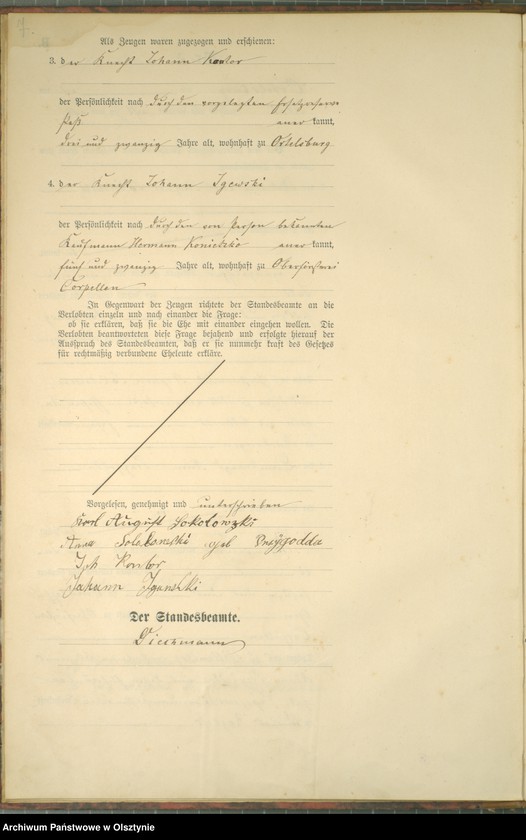 7.
Als Zeugen waren zugezogen und erschienen:
3. der Knecht Johann Kontor
der Persönlichkeit nach durch den vorgelegten Ersatzreserve
Paß anerkannt,
drei und zwanzig Jahre alt, wohnhaft zu Ortelsburg
4. der Knecht Johann Igewski
der Persönlichkeit nach durch den von Person bekannten
Kaufmann Hermann Konietzko anerkannt,
fünf und zwanzig Jahre alt, wohnhaft zu Oberförsterei
Corpellen
In Gegenwart der Zeugen richtete der Standesbeamte an die
Verlobten einzeln und nach einander die Frage:
ob sie erklären, daß sie die Ehe mit einander eingehen wollen. Die
Verlobten beantworteten diese Frage bejahend und erfolgte hierauf der
Ausspruch des Standesbeamten, daß er sie nunmehr kraft des Gesetzes
für rechtmäßig verbundene Eheleute erkläre.
Vorgelesen, genehmigt und unterschrieben
Karl August Sokolowski
Anna geb
Kontor
Johann
Der Standesbeamte.
Archiwum Państwowe w Olsztynie